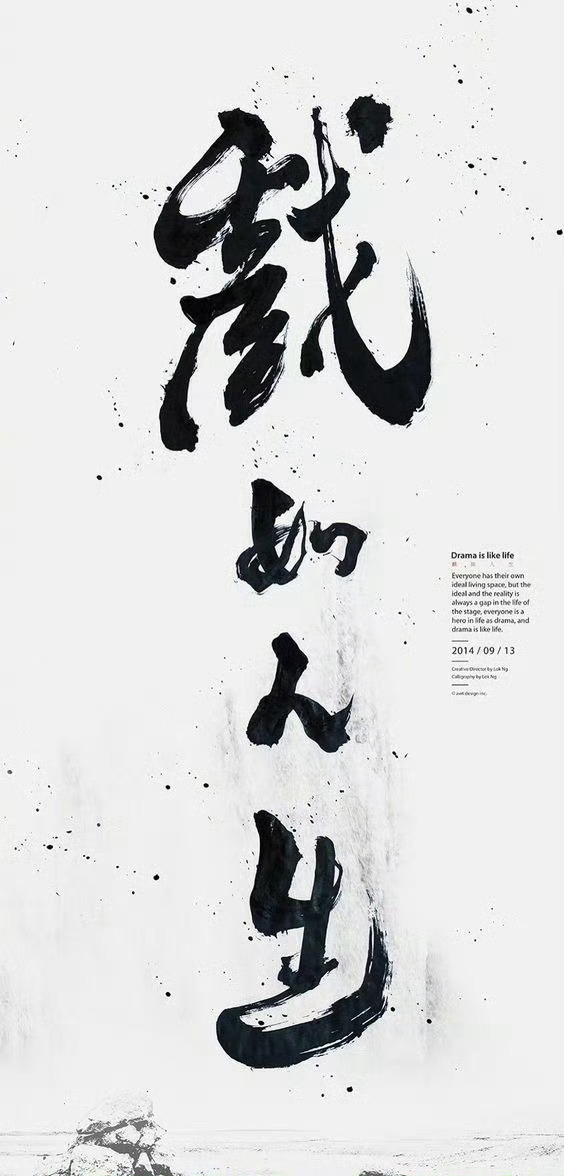 戲
如
人
生
Drama is like life
戲 如 人 生
Everyone has their own
ideal living space, but the
ideal and the reality is
always a gap in the life of
the stage, everyone is a
hero in life as drama, and
drama is like life.
2014 / 09 / 13
Creative Director by Lok Ng
Calligraphy by Lok Ng